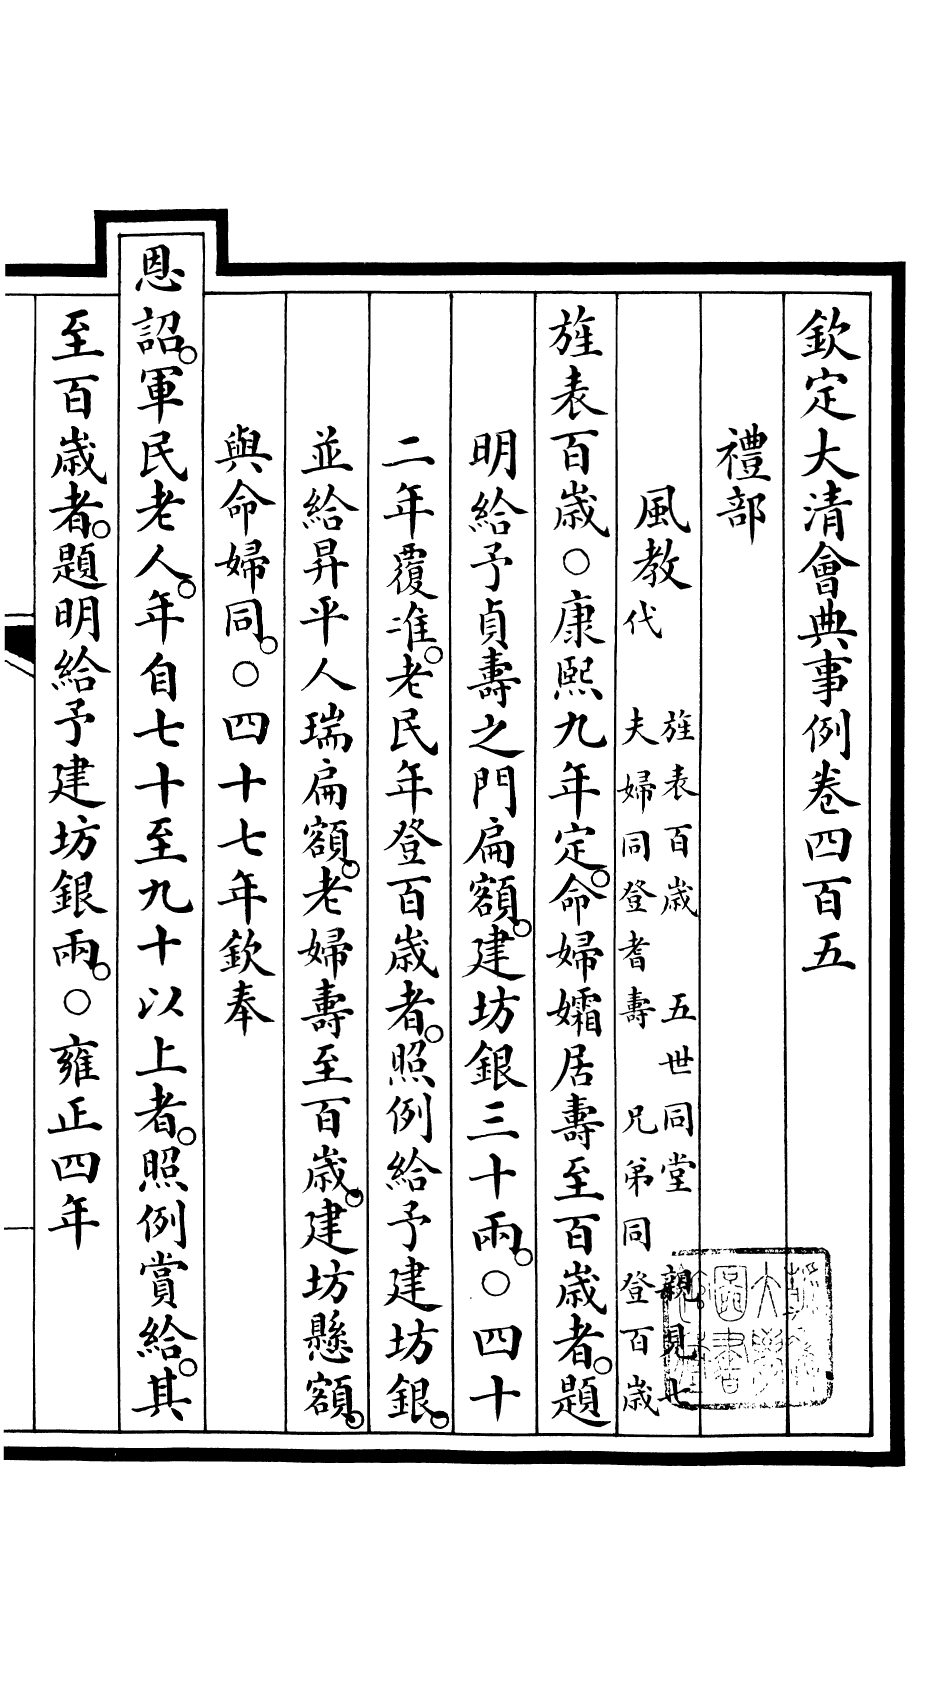 欽定大清會典事例卷四百五
禮部
風教
旌表百歲 五世同堂 親見七
代 夫婦同登耆壽 兄弟同登百歲
旌表百歲○康熙九年定。命婦孀居壽至百歲者。題
明給予貞壽之門扁額。建坊銀三十兩。○四十
二年覆准。老民年登百歲者。照例給予建坊銀。
並給昇平人瑞扁額。老婦壽至百歲。建坊懸額。
與命婦同。○四十七年欽奉
恩詔。軍民老人。年自七十至九十以上者。照例賞給。其
至百歲者。題明給予建坊銀兩。○雍正四年